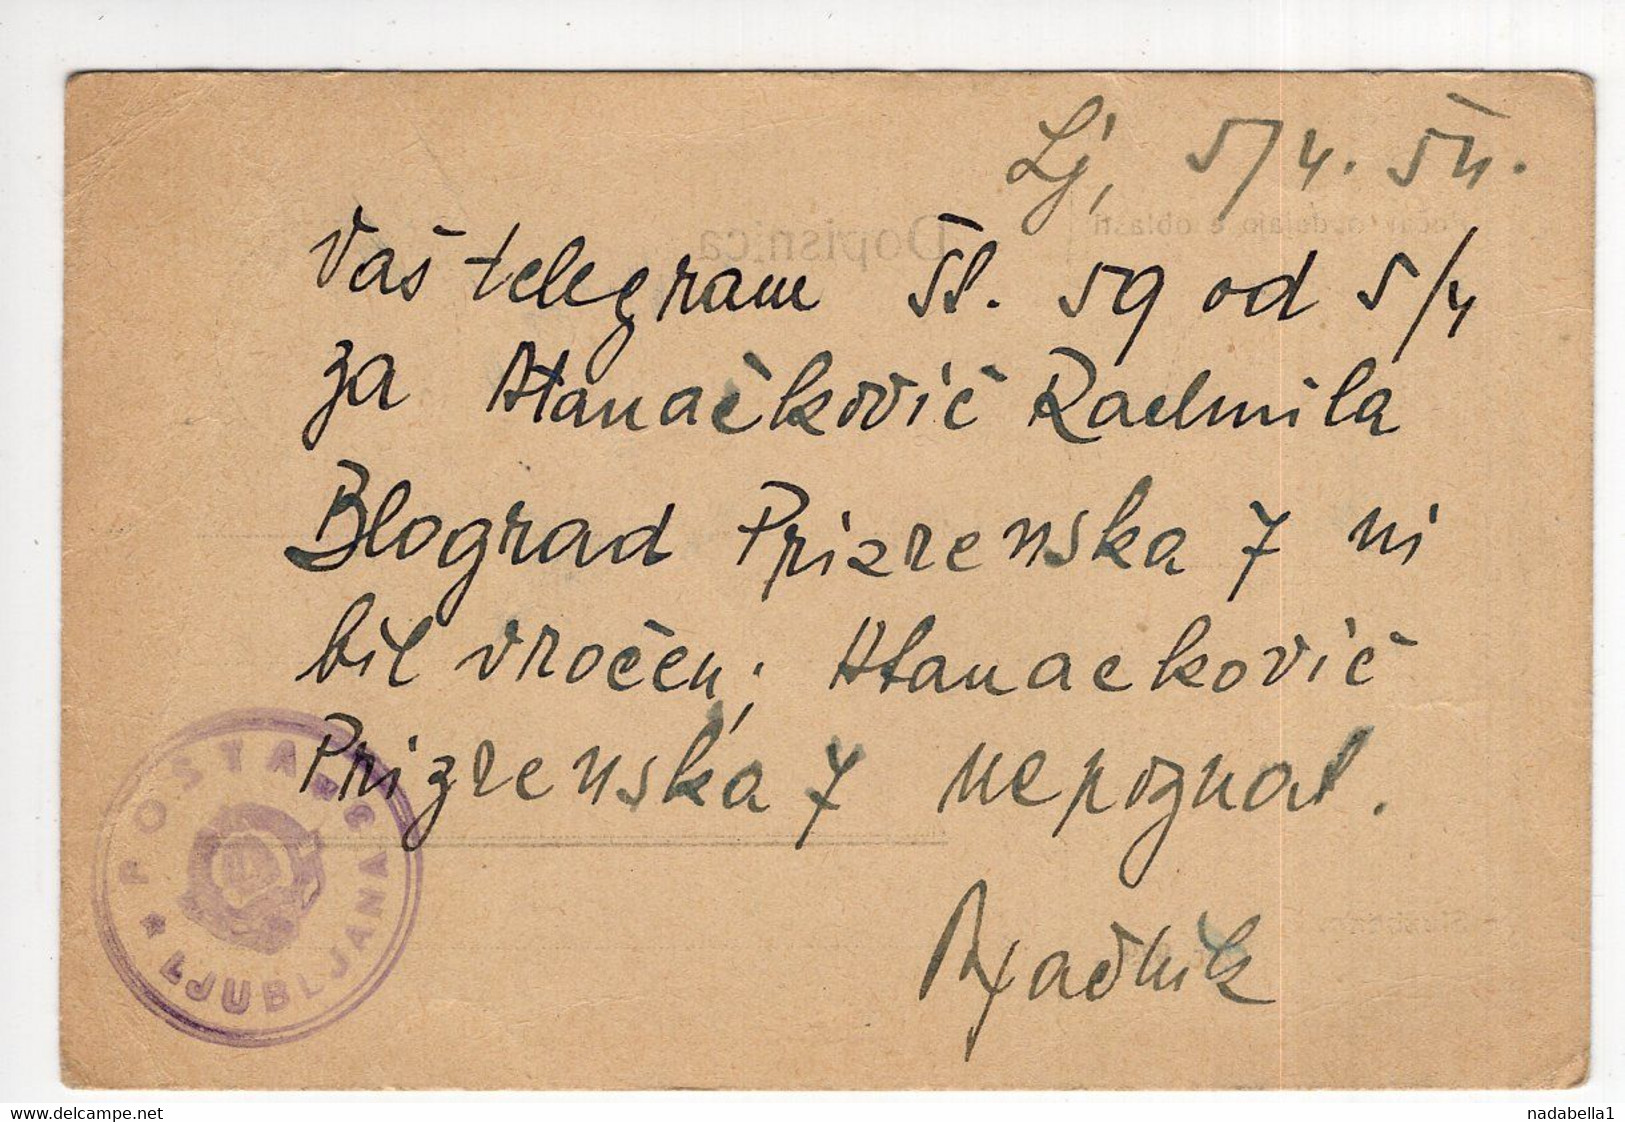 Lj, 5/4. 54.
Vaš telegram št. 59 od 5/4
za Atanačkovič Radmila
Beograd Prizrenska 7 ni
bil vročen; Atanackovič
Prizrenska 7 nepoznat.
POŠTA
LJUBLJANA
Dopisnica
nadabella1
www.delcampe.net